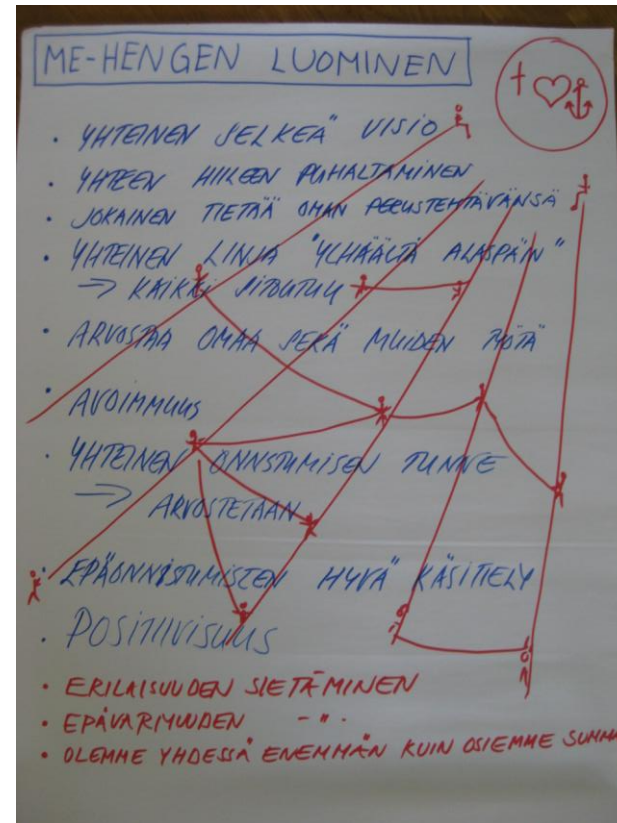 ME-HENGEN LUOMINEN
• YHTEINEN SELKEÄ VISIO
• YHTEEN HIILEEN PUHALTAMINEN
• JOKAINEN TIETÄÄ OMAN PERUSTEHTÄVÄNSÄ
• YHTEINEN LINJA "YLHÄÄLTÄ ALASPÄIN"
⇒ KAIKKI SITOUTUU
• ARVOSTAA OMAA SEKÄ MUIDEN TYÖTÄ
• AVOIMMUUS
• YHTEINEN ONNISTUMISEN TUNNE
⇒ ARVOSTETAAN
• EPÄONNISTUMISTEN HYVÄ KÄSITTELY
• POSITIIVISUUS
• ERILAISUUDEN SIETÄMINEN
• EPÄVARMUUDEN - " -
• OLEMME YHDESSÄ ENEMMÄN KUIN OSIEMME SUMMA